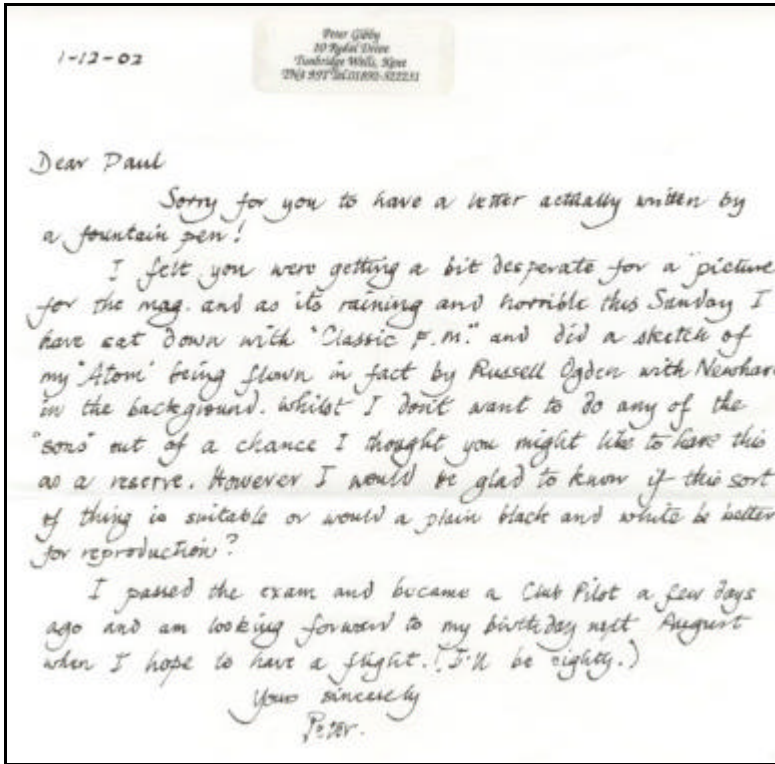 1-12-02
Peter Gibby
10 Rydal Drive
Tunbridge Wells, Kent
TN4 9ST Tel.01892-522231
Dear Paul
Sorry for you to have a letter actually written by
a fountain pen!
I felt you were getting a bit desperate for a picture
for the mag. and as its raining and horrible this Sunday I
have sat down with "Classic F.M." and did a sketch of
my 'Atom' being flown in fact by Russell Ogden with Newhave
in the background. Whilst I don't want to do any of the
"sons" out of a chance I thought you might like to have this
as a reserve. However I would be glad to know if this sort
of thing is suitable or would a plain black and white be better
for reproduction?
I passed the exam and became a Club Pilot a few days
ago and am looking forward to my birthday next August
when I hope to have a flight. (I'll be eighty.)
Yours sincerely
Peter.